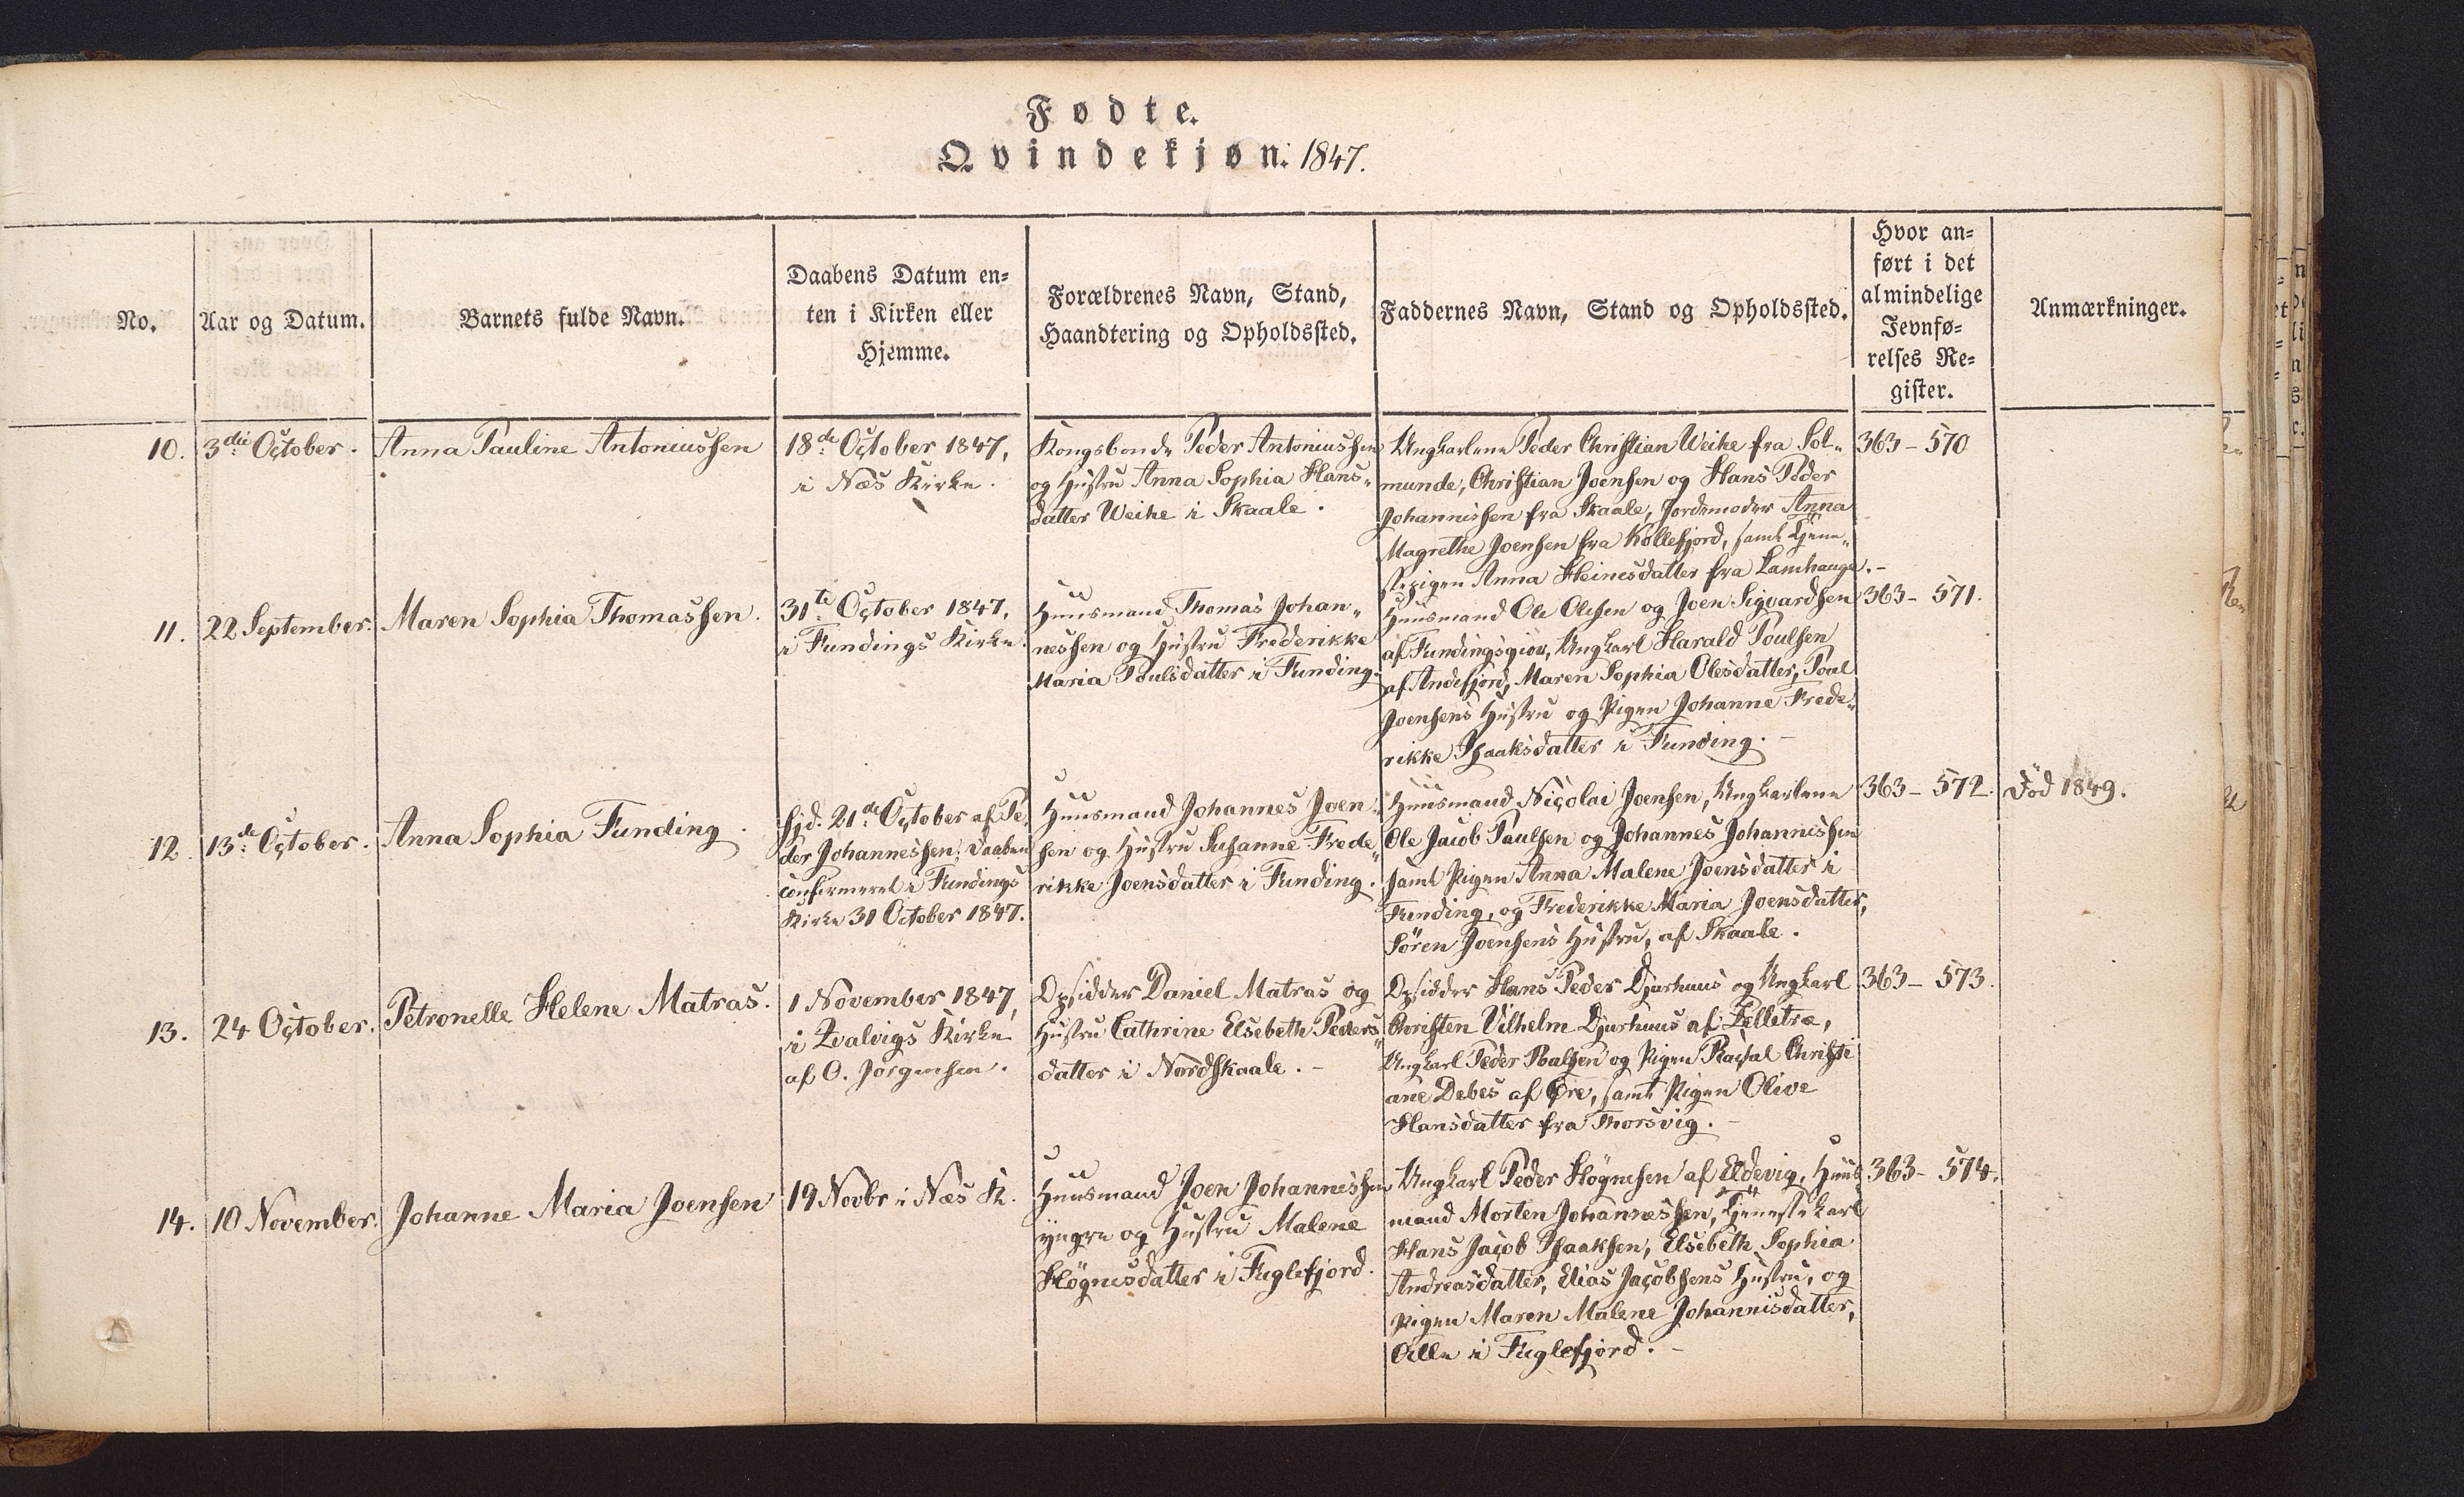 Fødte.
Qvindekjøn. 1847.
No.
Aar og Datum.
Barnets fulde Navn.
Daabens Datum en-
ten i Kirken eller
Hjemme.
Forældrenes Navn, Stand,
Haandtering og Opholdssted.
Faddernes Navn, Stand og Opholdssted.
Hvor an-
ført i det
almindelige
Jevnfø-
relses Re-
gister.
Anmærkninger.
10.
3die October.
Anna Pauline Antoniussen
18de October 1847,
i Næs Kirke.
Kongsbonde Peder Antoniussen
og Hustru Anna Sophia Hans-
datter Weihe i Skaale.
Ungkarlene Peder Christian Weihe fra Sol-
munde, Christian Joensen og Hans Peder
Johannissen fra Skaale, Jordemoder Anna
Magrethe Joensen fra Kollefjord, samt Tjene-
stepigen Anna Heinesdatter fra Lamhauge.-
363 - 570
11.
22 September.
Maren Sophia Thomassen.
31te October 1847,
i Fundings Kirke.
Huusmand Thomas Johan-
nessen og Hustru Frederikke
Maria Poulsdatter i Funding.
Huusmand Ole Olesen og Joen Sigvardsen
af Fundingsgiov, Ungkarl Harald Poulsen
af Andefjord, Maren Sophia Olesdatter, Poul
Joensens Hustru og Pigen Johanne Frede-
rikke Isaaksdatter i Funding.-
363- 571.
12.
13de October.
Anna Sophia Funding.
Hjd. 21de October af Pe-
der Johannessen; Daaben
confirmeret i Fundings
Kirke 31 October 1847.
Huusmand Johannes Joen-
sen og Hustru Susanne Frede-
rikke Joensdatter i Funding.
Huusmand Nicolai Joensen, Ungkarlene
Ole Jacob Paulsen og Johannes Johannissen
samt Pigen Anna Malene Joensdatter i
Funding, og Frederikke Maria Joensdatter,
Sören Joensens Hustru, af Skaale.
363- 572.
Död 1849.
13.
24 October.
Petronelle Helene Matras.
1 November 1847,
i Qvalvigs Kirke
af O. Jörgensen.
Opsidder Daniel Matras og
Hustru Cathrine Elsebeth Peders-
datter i Nordskaale.-
Opsidder Hans Peder Djurhuus og Ungkarl
Christen Vilhelm Djurhuus af Zelletræ,
Ungkarl Peder Poulsen og Pigen Rachal Christi
ane Debes af Øre, samt Pigen Olive
Hansdatter fra Thorsvig.-
363- 573.
14.
10 November.
Johanne Maria Joensen
19 Novbr i Næs K.
Huusmand Joen Johannessen
yngre og Hustru Malene
Högnesdatter i Fuglefjord.
Ungkarl Peder Högnesen af Eldevig, Huus-
mand Morten Johannessen, Tjenestekarl
Hans Jacob Isaaksen, Elsebeth Sophia
Andreasdatter, Elias Jacobsens Hustru, og
Pigen Maren Malene Johannisdatter,
Alle i Fuglefjord.-
363- 574.